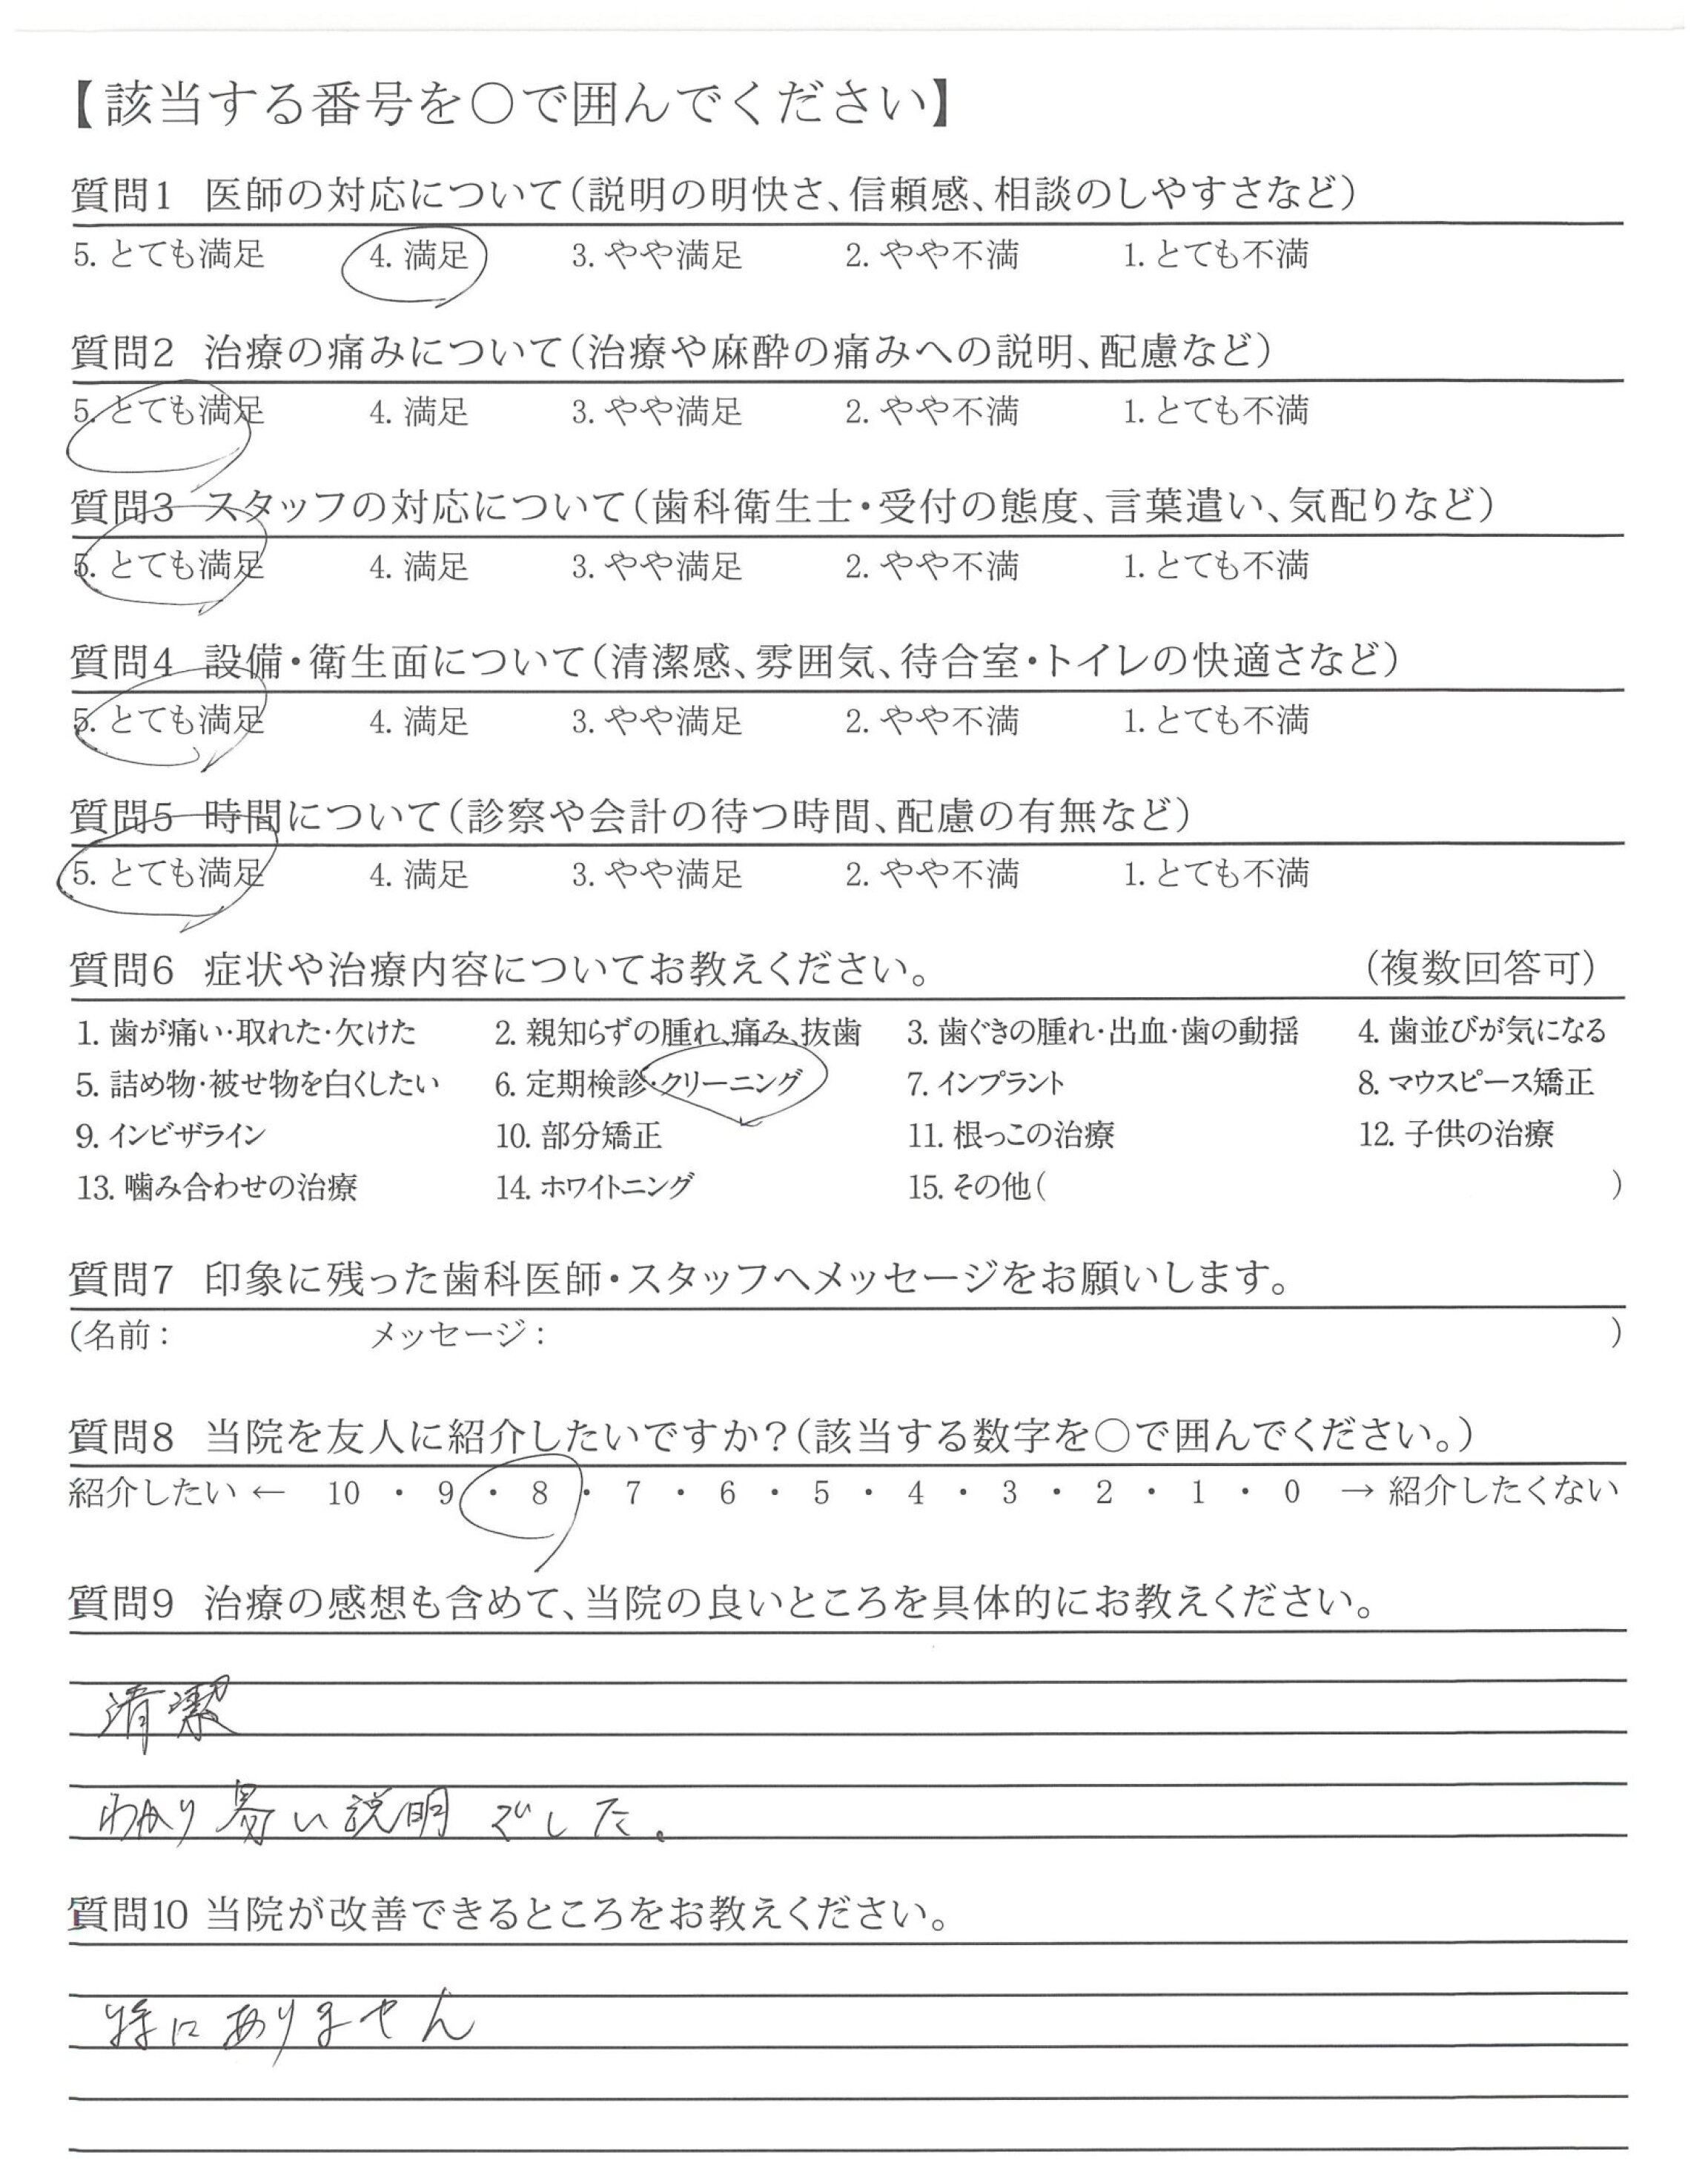 【該当する番号を〇で囲んでください】
質問1 医師の対応について（説明の明快さ、信頼感、相談のしやすさなど）
5. とても満足 4. 満足 3. やや満足 2. やや不満 1. とても不満
質問2 治療の痛みについて（治療や麻酔の痛みへの説明、配慮など）
5. とても満足 4. 満足 3. やや満足 2. やや不満 1. とても不満
質問3 スタッフの対応について（歯科衛生士・受付の態度、言葉遣い、気配りなど）
5. とても満足 4. 満足 3. やや満足 2. やや不満 1. とても不満
質問4 設備・衛生面について（清潔感、雰囲気、待合室・トイレの快適さなど）
5. とても満足 4. 満足 3. やや満足 2. やや不満 1. とても不満
質問5 時間について（診察や会計の待つ時間、配慮の有無など）
5. とても満足 4. 満足 3. やや満足 2. やや不満 1. とても不満
質問6 症状や治療内容についてお教えください。 （複数回答可）
1. 歯が痛い・取れた・欠けた 2. 親知らずの腫れ、痛み、抜歯 3. 歯ぐきの腫れ・出血・歯の動揺 4. 歯並びが気になる
5. 詰め物・被せ物を白くしたい 6. 定期検診・クリーニング 7. インプラント 8. マウスピース矯正
9. インビザライン 10. 部分矯正 11. 根っこの治療 12. 子供の治療
13. 噛み合わせの治療 14. ホワイトニング 15. その他（ ）
質問7 印象に残った歯科医師・スタッフへメッセージをお願いします。
（名前： メッセージ： ）
質問8 当院を友人に紹介したいですか？（該当する数字を〇で囲んでください。）
紹介したい ← 10 ・ 9 ・ 8 ・ 7 ・ 6 ・ 5 ・ 4 ・ 3 ・ 2 ・ 1 ・ 0 → 紹介したくない
質問9 治療の感想も含めて、当院の良いところを具体的にお教えください。
清潔
わかり易い説明でした。
質問10 当院が改善できるところをお教えください。
特にありません